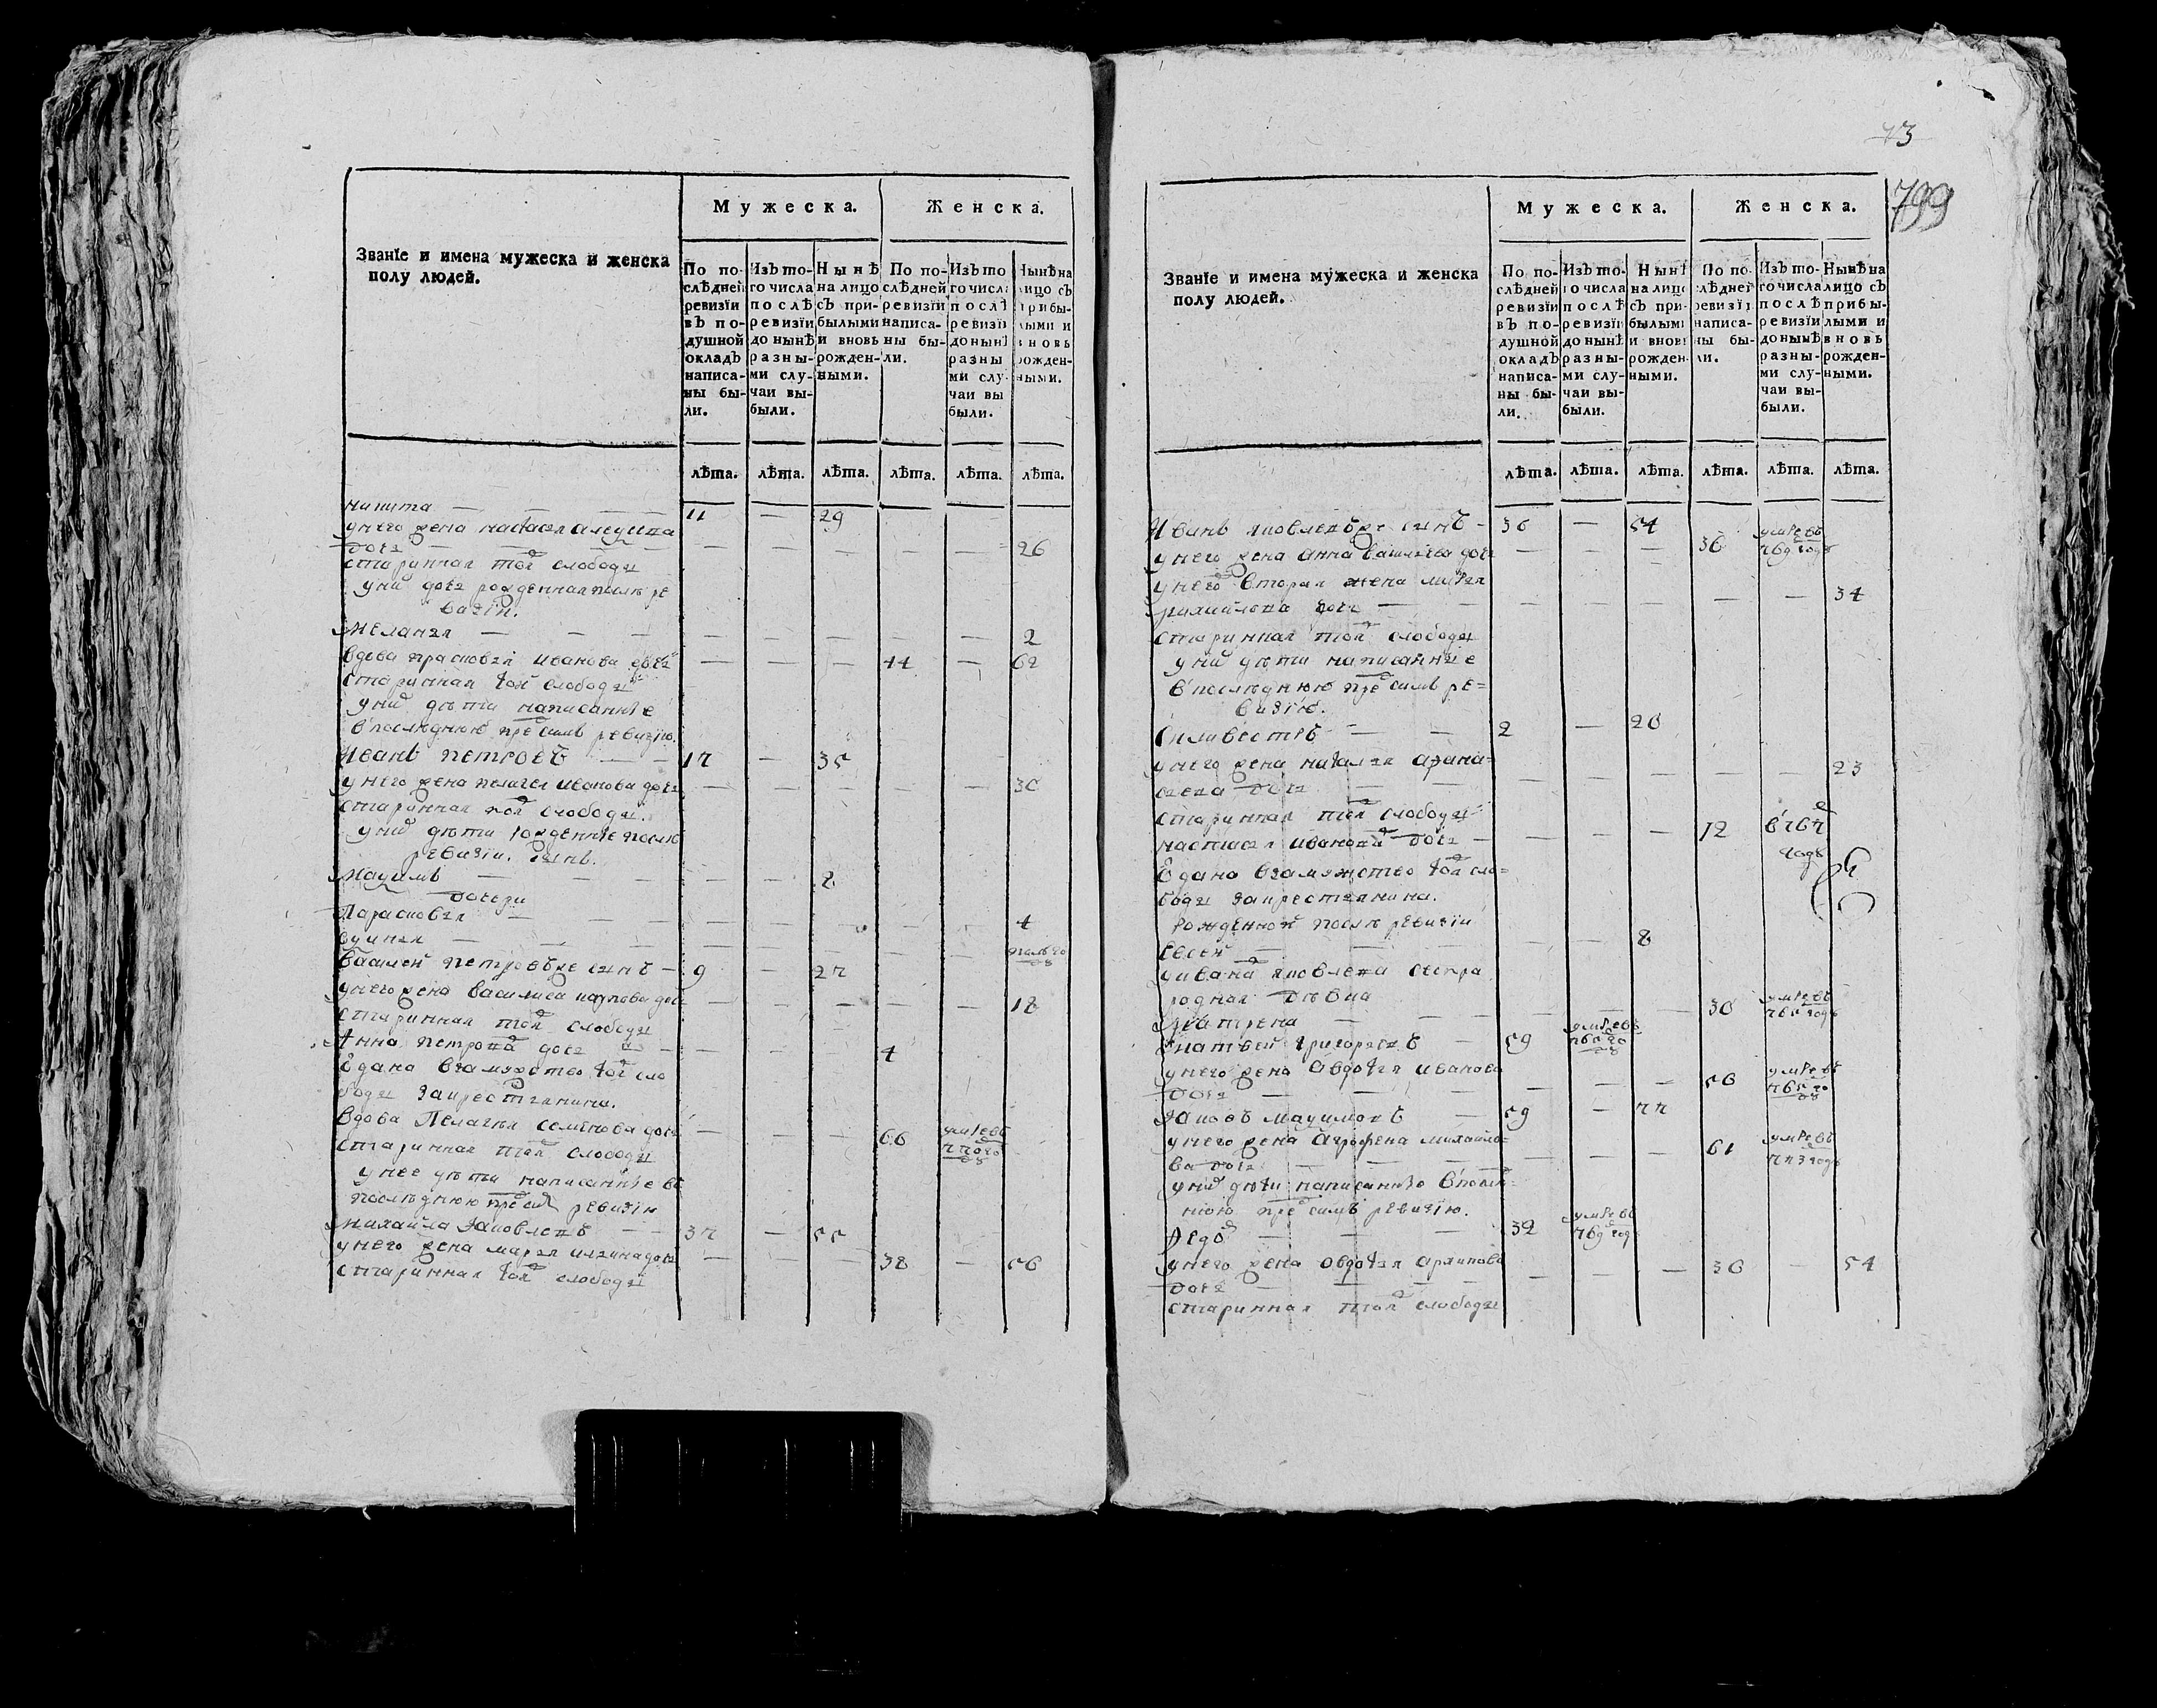 Званїе и имена мужеска и женска
полу людей.
Мужеска.
Женска.
По по-
слѣдней
ревизїи
въ по-
душной
окладъ
написа-
ны бы-
ли.
Изъ то-
го числа
послѣ
ревизїи
до нынѣ
разны-
ми слу-
чаи вы-
были.
Нынѣ
на лицо
съ при-
былыми
и вновь
рожден-
ными.
По по-
слѣдней
ревизїи
написа-
ны бы-
ли.
Изъ то
го числа
послѣ
ревизїи
до нынѣ
разны
ми слу-
чаи вы
были.
Нынѣ на
лицо съ
прибы-
лыми и
вновь
рожден-
ными.
лѣта. лѣта. лѣта. лѣта. лѣта. лѣта.
никита — — — 11 — 29
у него жена настасья
дочь — — — — — — — — 26
старинная той слободы
у них дочь рожденная после ре
визїи.
меланья — — — — — — — — 2
вдова прасковья иванова дочь — — — 44 — 62
старинная той слободы
у них дѣти написанные
в последнюю пред сим ревизию.
Иванъ петровъ — — 17 — 35
у него жена пелагея иванова дочь — — — — — 30
старинная той слободы.
у них дѣти рожденные после
ревизїи. сынъ.
Максимъ — — — — — 8
дочери
Парасковья — — — 4
— — — — — — — — полъго
да
Василей петровъ же сынъ — 9 — 27
у него жена василиса дочь — — — — — 18
старинная той слободы
Анна петрова дочь — — — — 4
Ѣ дана в замужство той сло
боды за крестьянина.
вдова Пелагея семенова дочь — — — 66 умре въ
старинная той слободы
у нее дѣти написанные в
последнюю пред сим ревизїю
михайла Яковлевъ — — 37 — 55
у него жена марья дочь — — — 38 — 56
старинная той слободы
73
799
Званїе и имена мужеска и женска
полу людей.
Мужеска.
Женска.
По по-
слѣдней
ревизїи
въ по-
душной
окладъ
написа-
ны бы-
ли.
Изъ то-
го числа
послѣ
ревизїи
до нынѣ
разны-
ми слу-
чаи вы-
были.
Нынѣ
на лицо
съ при-
былыми
и вновь
рожден-
ными.
По по-
слѣдней
ревизїи
написа-
ны бы-
ли.
Изъ то-
го числа
послѣ
ревизїи
до нынѣ
разны-
ми слу-
чаи вы-
были.
Нынѣ на
лицо съ
прибы-
лыми и
вновь
рожден-
ными.
лѣта. лѣта. лѣта. лѣта. лѣта. лѣта.
Иванъ яковлевъ же сынъ — 36 — 54
у него жена анна васильева дочь — — — 36 умре въ
у него вторая жена марья
михайлова дочь — — — — — — — 34
старинная той слободы
у них дѣти написанные
в последнюю пред симъ ре=
визїю.
Силивестръ — — 2 — 20
у него жена наталья
дочь — — — — — — — 23
старинная той слободы
настасья иванова дочь — — — — 12
года
Ѣ дана в замужство той сло=
боды за крестьянина.
рожденной после ревизїи
Евсей — — — — 8
у ивана яковлева сестра
родная девка
— — — — — — 30 умре въ
матвей григорьевъ — 59 умре въ
у него жена Авдотья иванова
дочь — — — — — — 56 умре въ
Яковъ максимовъ — 59 — 77
у него жена Аграфена михайло=
ва дочь — — — — — — 61 умре въ
у них дѣти написанные в послед=
нюю пред симъ ревизїю.
Федор — — — 32 умре въ
у него жена овдотья архипова
дочь — — — — — — 36 — 54
старинная той слободы